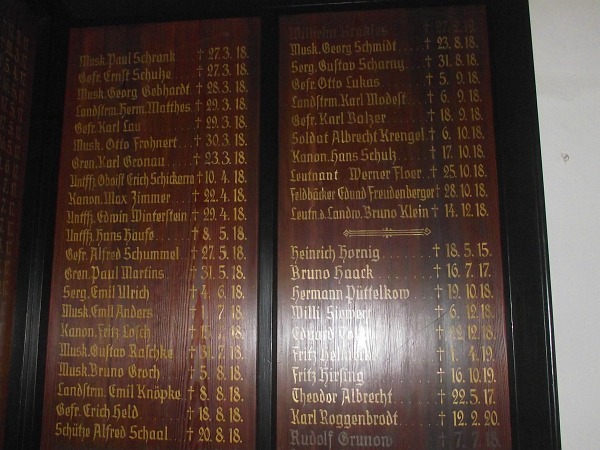 Musk. Paul Schrank ... † 27.3. 18.
Gefr. Ernst Schulze ... † 27.3. 18.
Musk. Georg Gebhardt † 28.3. 18.
Landstrm. Herm. Matthes † 29.3. 18.
Gefr. Karl Lau ... † 29.3. 18.
Musk. Otto Frohnert ... † 30.3. 18.
Gren. Karl Gronau ... † 23.3. 18.
Untffz. Oboist Erich Schickerra † 10. 4. 18.
Kanon. Max Zimmer ... † 22.4. 18.
Untffz. Edwin Winterstein † 29.4. 18.
Untffz. Hans Haufe ... † 8. 5. 18.
Gefr. Alfred Schummel ... † 27. 5. 18.
Gren. Paul Martins ... † 31. 5. 18.
Serg. Emil Ulrich ... † 4. 6. 18.
Musk. Emil Anders ... † 7. 18.
Kanon. Fritz Losch ... † 7. 18.
Musk. Gustav Raschke ... † 31. 7. 18.
Musk. Bruno Groch ... † 5. 8. 18.
Landstrm. Emil Knöpke † 8. 8. 18.
Gefr. Erich Held ... † 18. 8. 18.
Schütze Alfred Schaal ... † 20. 8. 18.
Wilhelm † 27. 8. 18.
Musk. Georg Schmidt ... † 23. 8. 18.
Serg. Gustav Scharny ... † 31. 8. 18.
Gefr. Otto Lukas ... † 5. 9. 18.
Landstrm. Karl Modest ... † 6. 9. 18.
Gefr. Karl Balzer ... † 18. 9. 18.
Soldat Albrecht Krengel † 6. 10. 18.
Kanon. Hans Schulz ... † 17. 10. 18.
Leutnant Werner Floer ... † 25. 10. 18.
Feldbäcker Eduad Freudenberger † 28. 10. 18.
Leutn. d. Landw. Bruno Klein † 14. 12. 18.
Heinrich Hornig ... † 18. 5. 15.
Bruno Haack ... † 16. 7. 17.
Hermann Püttelkow ... † 19. 10. 18.
Willi ... † 6. 12. 18.
Eduard ... † 22. 12. 18.
Fritz ... † 1. 4. 19.
Fritz Hirsing ... † 16. 10. 19.
Theodor Albrecht ... † 22. 5. 17.
Karl Roggenbrodt ... † 12. 2. 20.
Rudolf Grunow ... † 7. 7. 18.